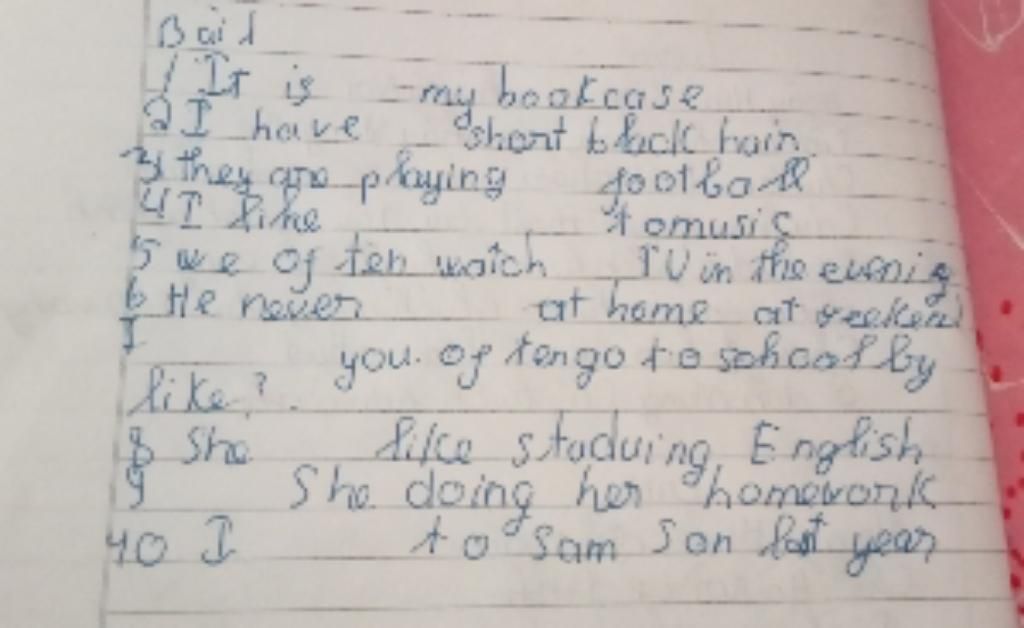 Bai 1
1 It is my bookcase
2 I have short black hair
3 they are playing football
4 I like to music
5 we of ten watch TV in the evenig
6 He never at home at weekend
7 you of ten go to school by
like?
8 She like studuing English
9 She doing her homework
10 I to Sam Son last year